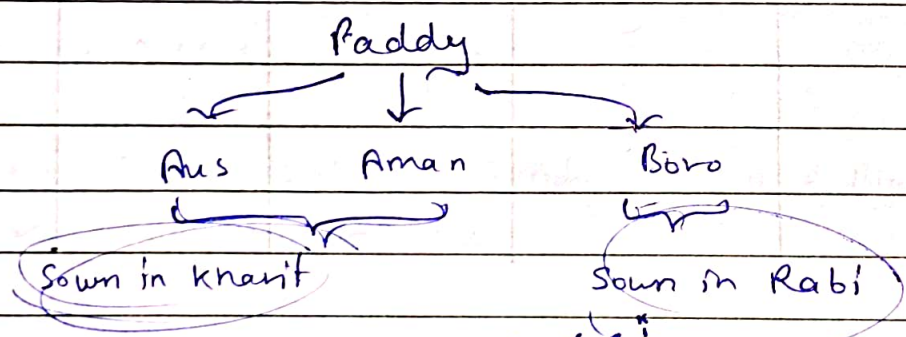 Paddy
Aus Aman Boro
Sown in kharif Sown in Rabi